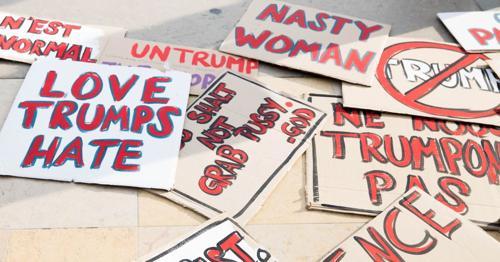 N'EST
NORMAL
UN TRUMP
NASTY
WOMAN
TRUMP
LOVE
TRUMPS
HATE
SHALT
NOT
GRAB PUSSY.
-GOD
NE NOUS
TRUMPON
PAS